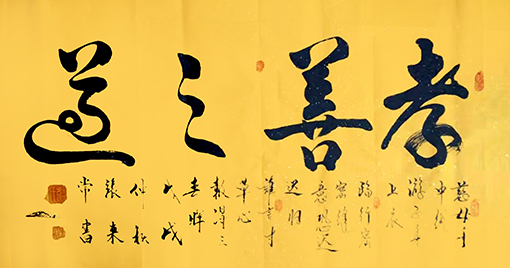 孝善之道
慈母手
中线
游子身
上衣
临行密
密缝
意恐迟
迟归
谁言寸
草心
報得三
春晖
戊戌
仲秋
張来
常書